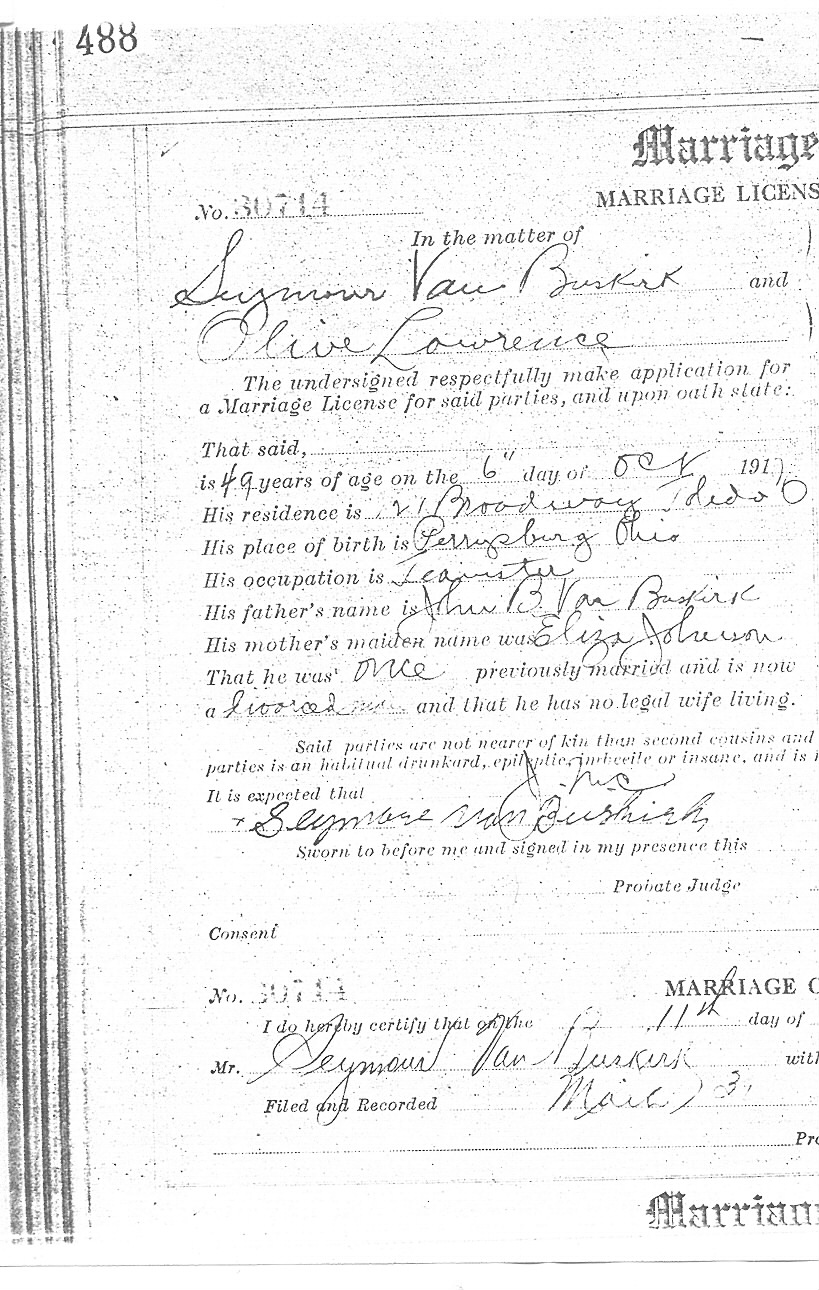 488
Marriage
MARRIAGE LICENS
No. 30714
In the matter of
Seymour Van Buskirk and
Olive Lawrence
The undersigned respectfully make application for
a Marriage License for said parties, and upon oath state:
That said,
is 49 years of age on the 6" day of Oct 1917
His residence is 21 Broadway Toledo O
His place of birth is Perrysburg Ohio
His occupation is Teamster
His father's name is John B. Van Buskirk
His mother's maiden name was Eliza Johnson
That he was once previously married and is now
a divorced man and that he has no legal wife living.
Said parties are not nearer of kin than second cousins and
parties is an habitual drunkard, epileptic, imbecile or insane, and is
It is expected that
Seymore van Buskirk
Sworn to before me and signed in my presence this
Probate Judge
Consent
No. 30714 MARRIAGE C
I do hereby certify that on the 11th day of
Mr. Seymour Van Buskirk with
Filed and Recorded
Pro
Marriag